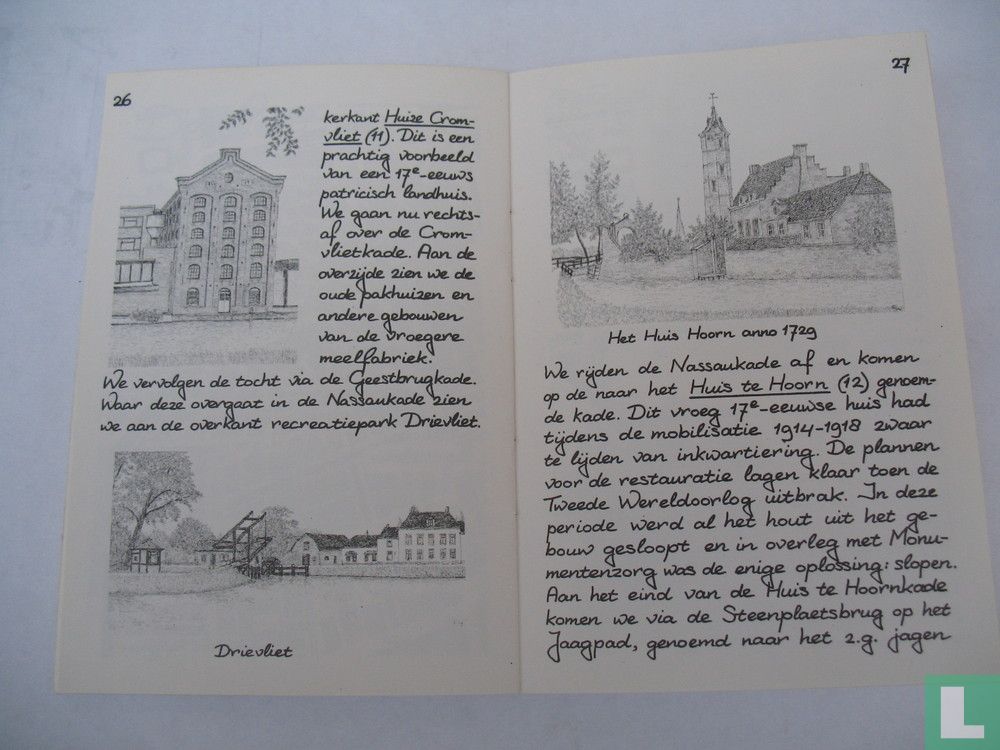 26
kerkant Huize Crom-
vliet (11). Dit is een
prachtig voorbeeld
van een 17e-eeuws
patricisch landhuis.
We gaan nu rechts-
af over de Crom-
vlietkade. Aan de
overzijde zien we de
oude pakhuizen en
andere gebouwen
van de vroegere
meelfabriek.
We vervolgen de tocht via de Geestbrugkade.
Waar deze overgaat in de Nassaukade zien
we aan de overkant recreatiepark Drievliet.
Drievliet
27
Het Huis Hoorn anno 1729
We rijden de Nassaukade af en komen
op de naar het Huis te Hoorn (12) genoem-
de kade. Dit vroeg 17e-eeuwse huis had
tijdens de mobilisatie 1914-1918 zwaar
te lijden van inkwartiering. De plannen
voor de restauratie lagen klaar toen de
Tweede Wereldoorlog uitbrak. In deze
periode werd al het hout uit het ge-
bouw gesloopt en in overleg met Monu-
mentenzorg was de enige oplossing: slopen.
Aan het eind van de Huis te Hoornkade
komen we via de Steenplaetsbrug op het
Jaagpad, genoemd naar het z.g. jagen
L